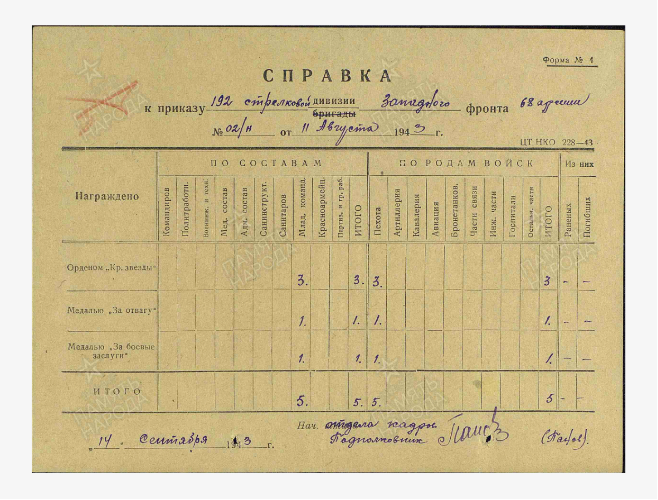 Форма № 1
СПРАВКА
к приказу 192 стрелковой дивизии Западного фронта 68 армии
бригады
№ 02/н от 11 Августа 1943 г.
ЦТ НКО 228—43
Награждено ПО СОСТАВАМ ПО РОДАМ ВОЙСК Из них
Командиров Политработн. Мед. состав Адм. состав Санинструкт. Санитаров Млад. команд. Красноармейц. Партиз. и гр. раб. ИТОГО Пехота Артиллерия Кавалерия Авиация Бронетанков. Части связи Инж. части Госпитали Остальн. части ИТОГО Раненых Погибших
Орденом „Кр. звезды" 3. 3. 3. 3 – –
Медалью „За отвагу" 1. 1. 1. 1. – –
Медалью „За боевые
заслуги" 1. 1. 1. 1. – –
ИТОГО 5. 5. 5. 5 – –
Нач. отдела кадров
„14" Сентября 1943 г. Подполковник
ПАМЯТЬ НАРОДА